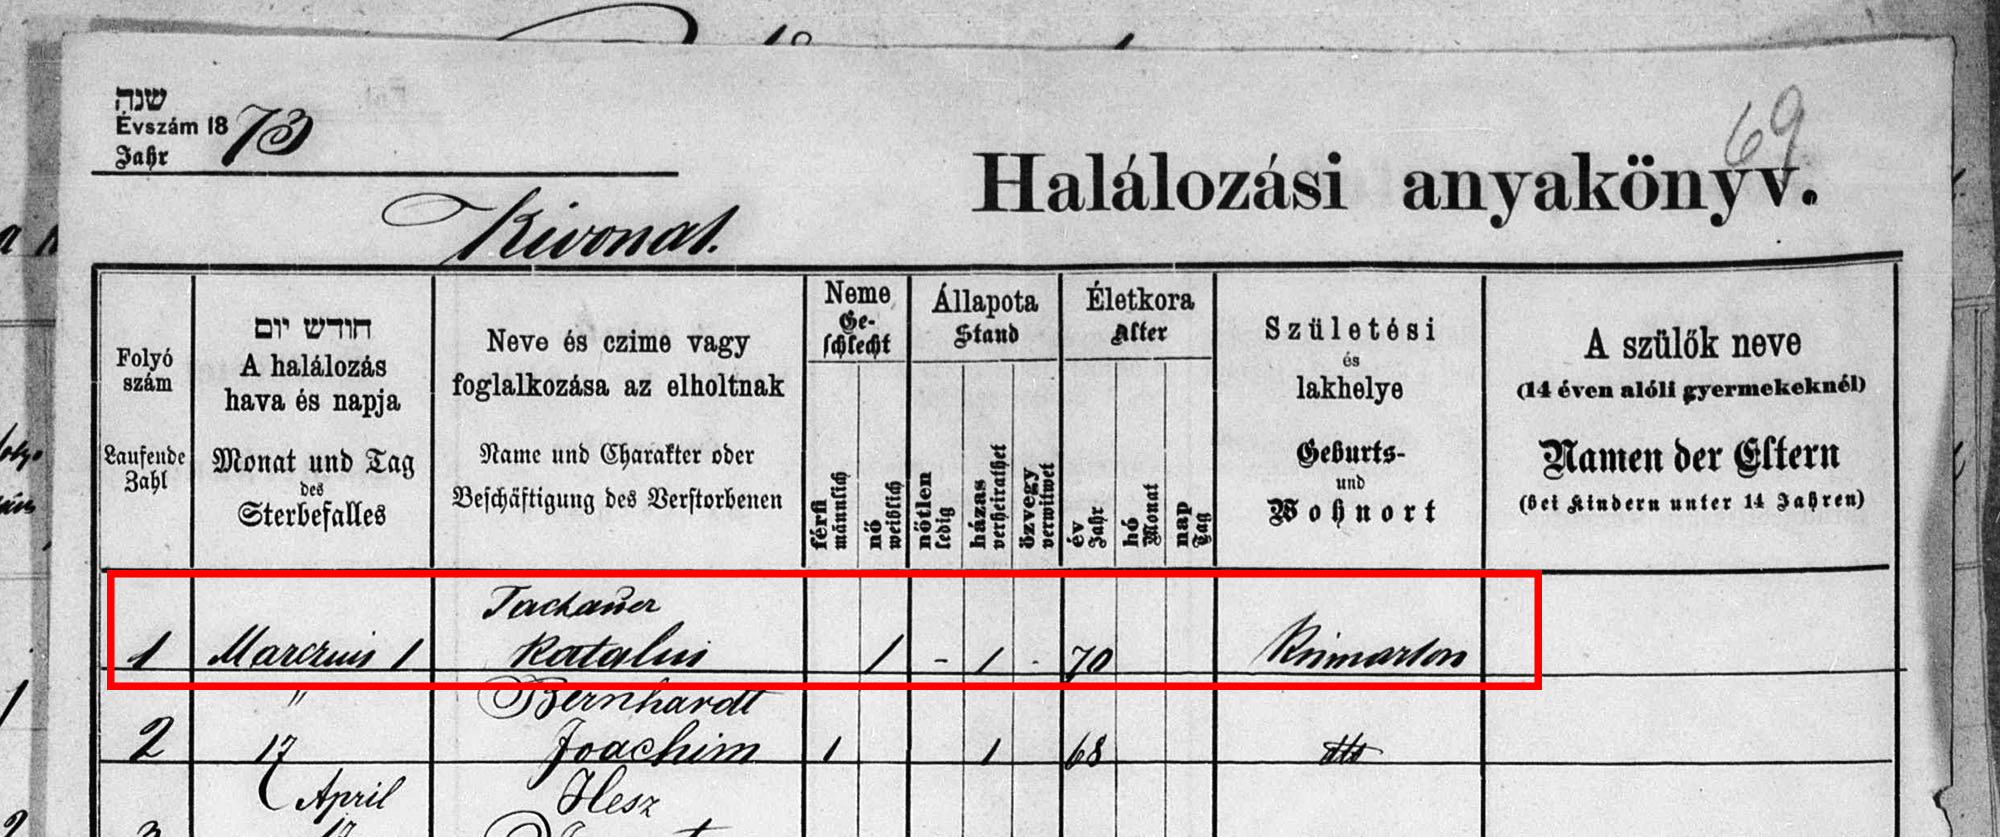 69
שנה
Évszám 1873
Jahr
Halálozási anyakönyv.
Kivonat.
Folyó szám
Laufende Zahl
חודש יום
A halálozás hava és napja
Monat und Tag des Sterbefalles
Neve és czime vagy foglalkozása az elholtnak
Name und Charakter oder Beschäftigung des Verstorbenen
Neme
Ge-schlecht
férfi männlich
nő weiblich
Állapota
Stand
nőtlen ledig
házas verheirathet
özvegy verwitwet
Életkora
Alter
év Jahr
hó Monat
nap Tag
Születési és lakhelye
Geburts- und Wohnort
A szülők neve
(14 éven alóli gyermekeknél)
Namen der Eltern
(bei Kindern unter 14 Jahren)
Tachauer
1 Marczius 1 Katalin 1 - 1 - 70 Kismarton
" Bernhardt
2 17 Joachim 1 1 68 dto
April Hesz
3